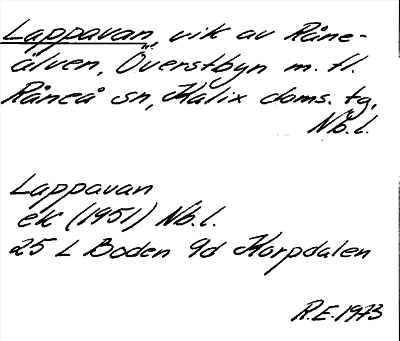 Lappavan, vik av Råne-
älven, Överstbyn m. fl.
Råneå sn, Kalix doms. tg,
Nb. l.
Lappavan
ek (1951) Nb. l.
25 L Boden 9d Korpdalen
R.E. 1973